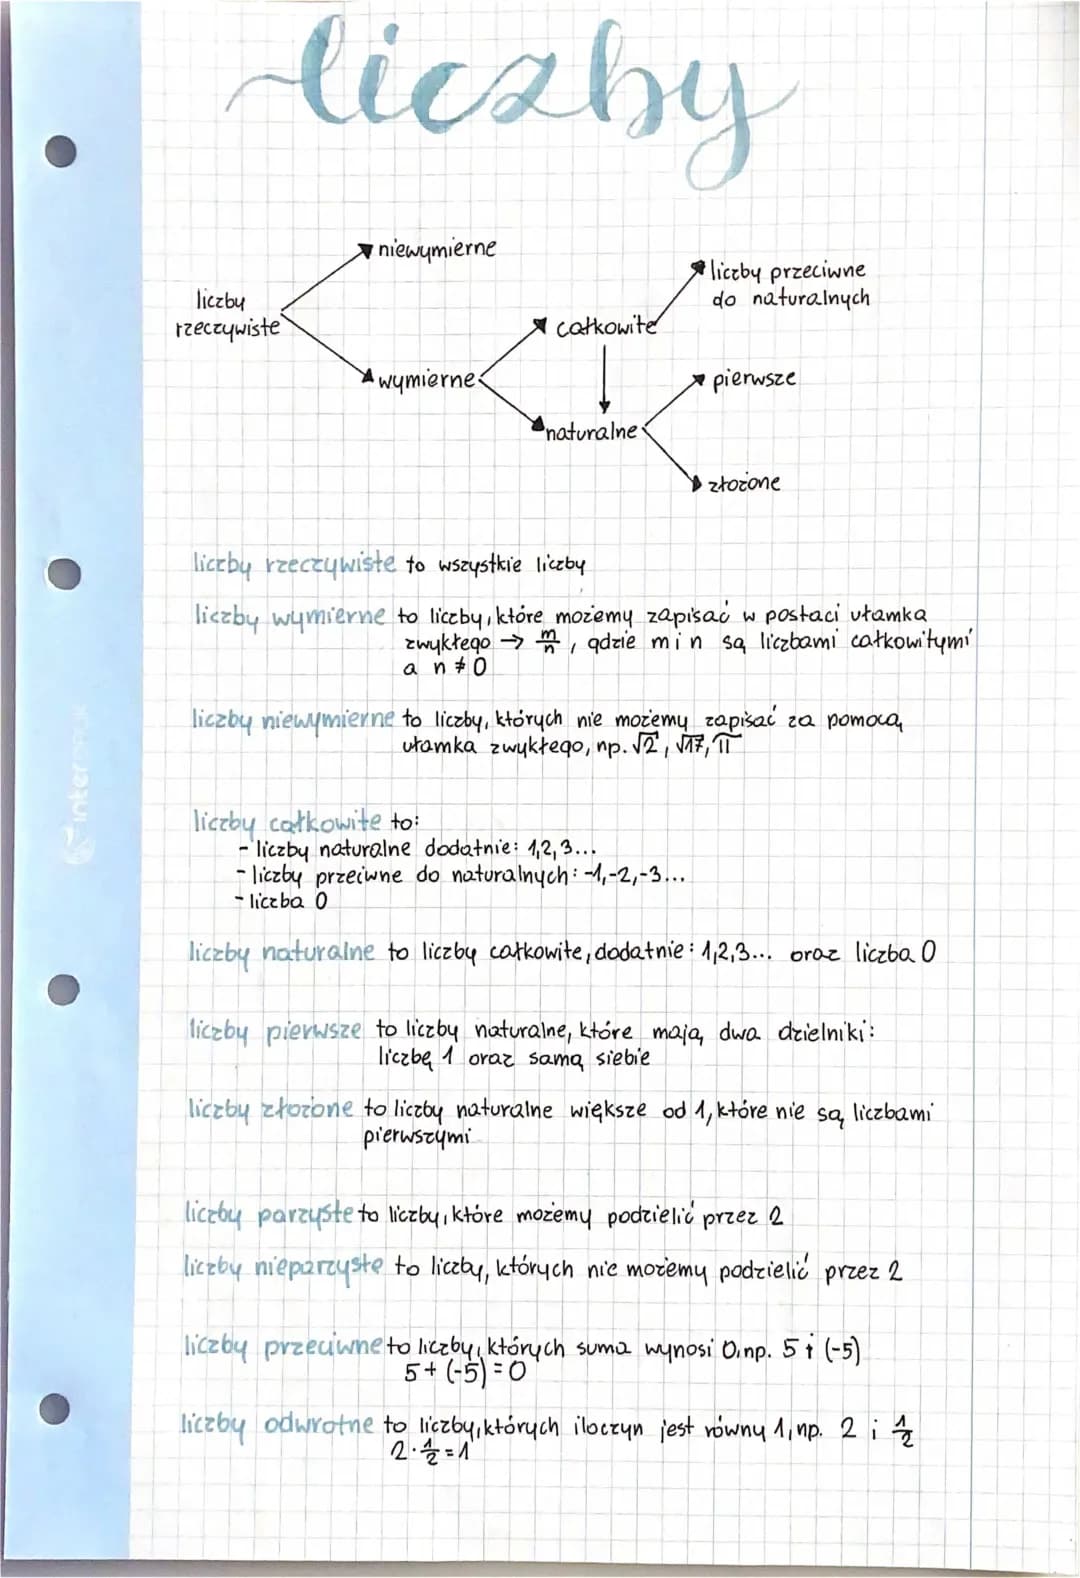 liczby
niewymierne
liczby przeciwne
do naturalnych
liczby
rzeczywiste
całkowite
wymierne
pierwsze
naturalne
złożone
liczby rzeczywiste to wszystkie liczby
liczby wymierne to liczby, które możemy zapisać w postaci ułamka
zwykłego → m/n, gdzie m i n są liczbami całkowitymi
a n ≠ 0
liczby niewymierne to liczby, których nie możemy zapisać za pomocą
ułamka zwykłego, np. √2, √17, π
liczby całkowite to:
- liczby naturalne dodatnie: 1,2,3...
- liczby przeciwne do naturalnych: -1,-2,-3...
- liczba 0
liczby naturalne to liczby całkowite, dodatnie: 1,2,3... oraz liczba 0
liczby pierwsze to liczby naturalne, które mają dwa dzielniki:
liczbę 1 oraz samą siebie
liczby złożone to liczby naturalne większe od 1, które nie są liczbami
pierwszymi
liczby parzyste to liczby, które możemy podzielić przez 2
liczby nieparzyste to liczby, których nie możemy podzielić przez 2
liczby przeciwne to liczby, których suma wynosi 0, np. 5 i (-5)
5 + (-5) = 0
liczby odwrotne to liczby, których iloczyn jest równy 1, np. 2 i 1/2
2 · 1/2 = 1
interdruk